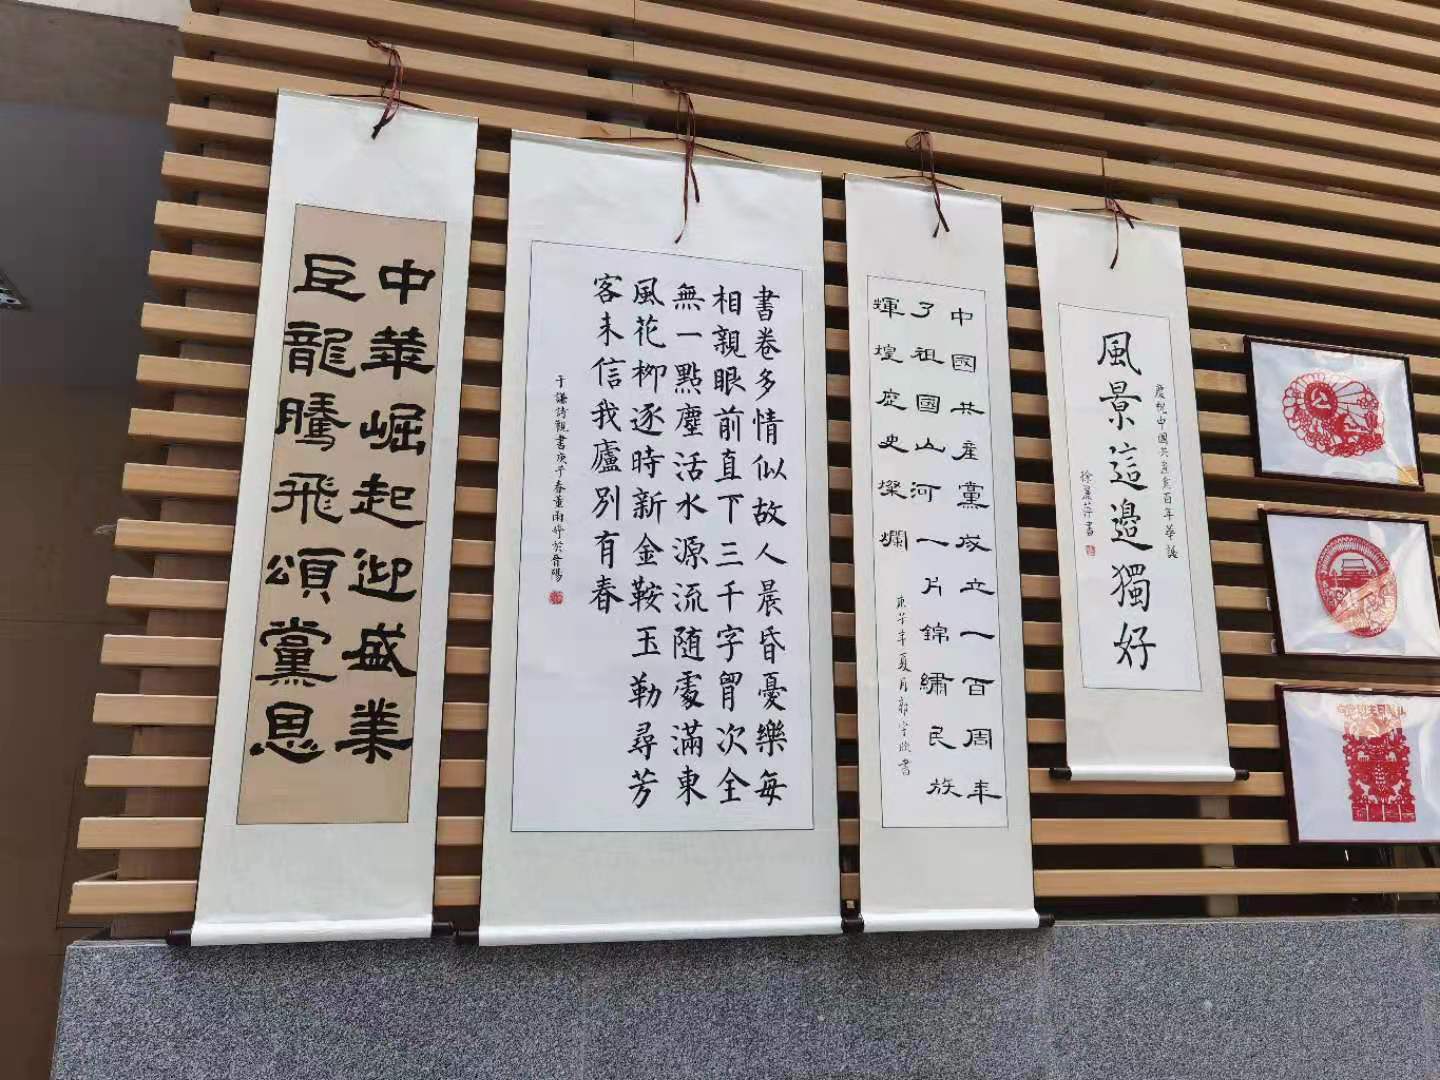 中華崛起迎盛業
巨龍騰飛頌黨恩
書卷多情似故人晨昏憂樂每
相親眼前直下三千字胷次全
無一點塵活水源流随處滿東
風花柳逐時新金鞍玉勒尋芳
客未信我廬別有春
于謙詩觀書庚子春董雨婷於晉陽
中國共產黨成立一百周年
了祖國山河一片錦繡民族
輝煌歷史燦爛
夏月郭宇欣書
慶祝中國共產黨百年華誕
風景這邊獨好
徐晨萍書